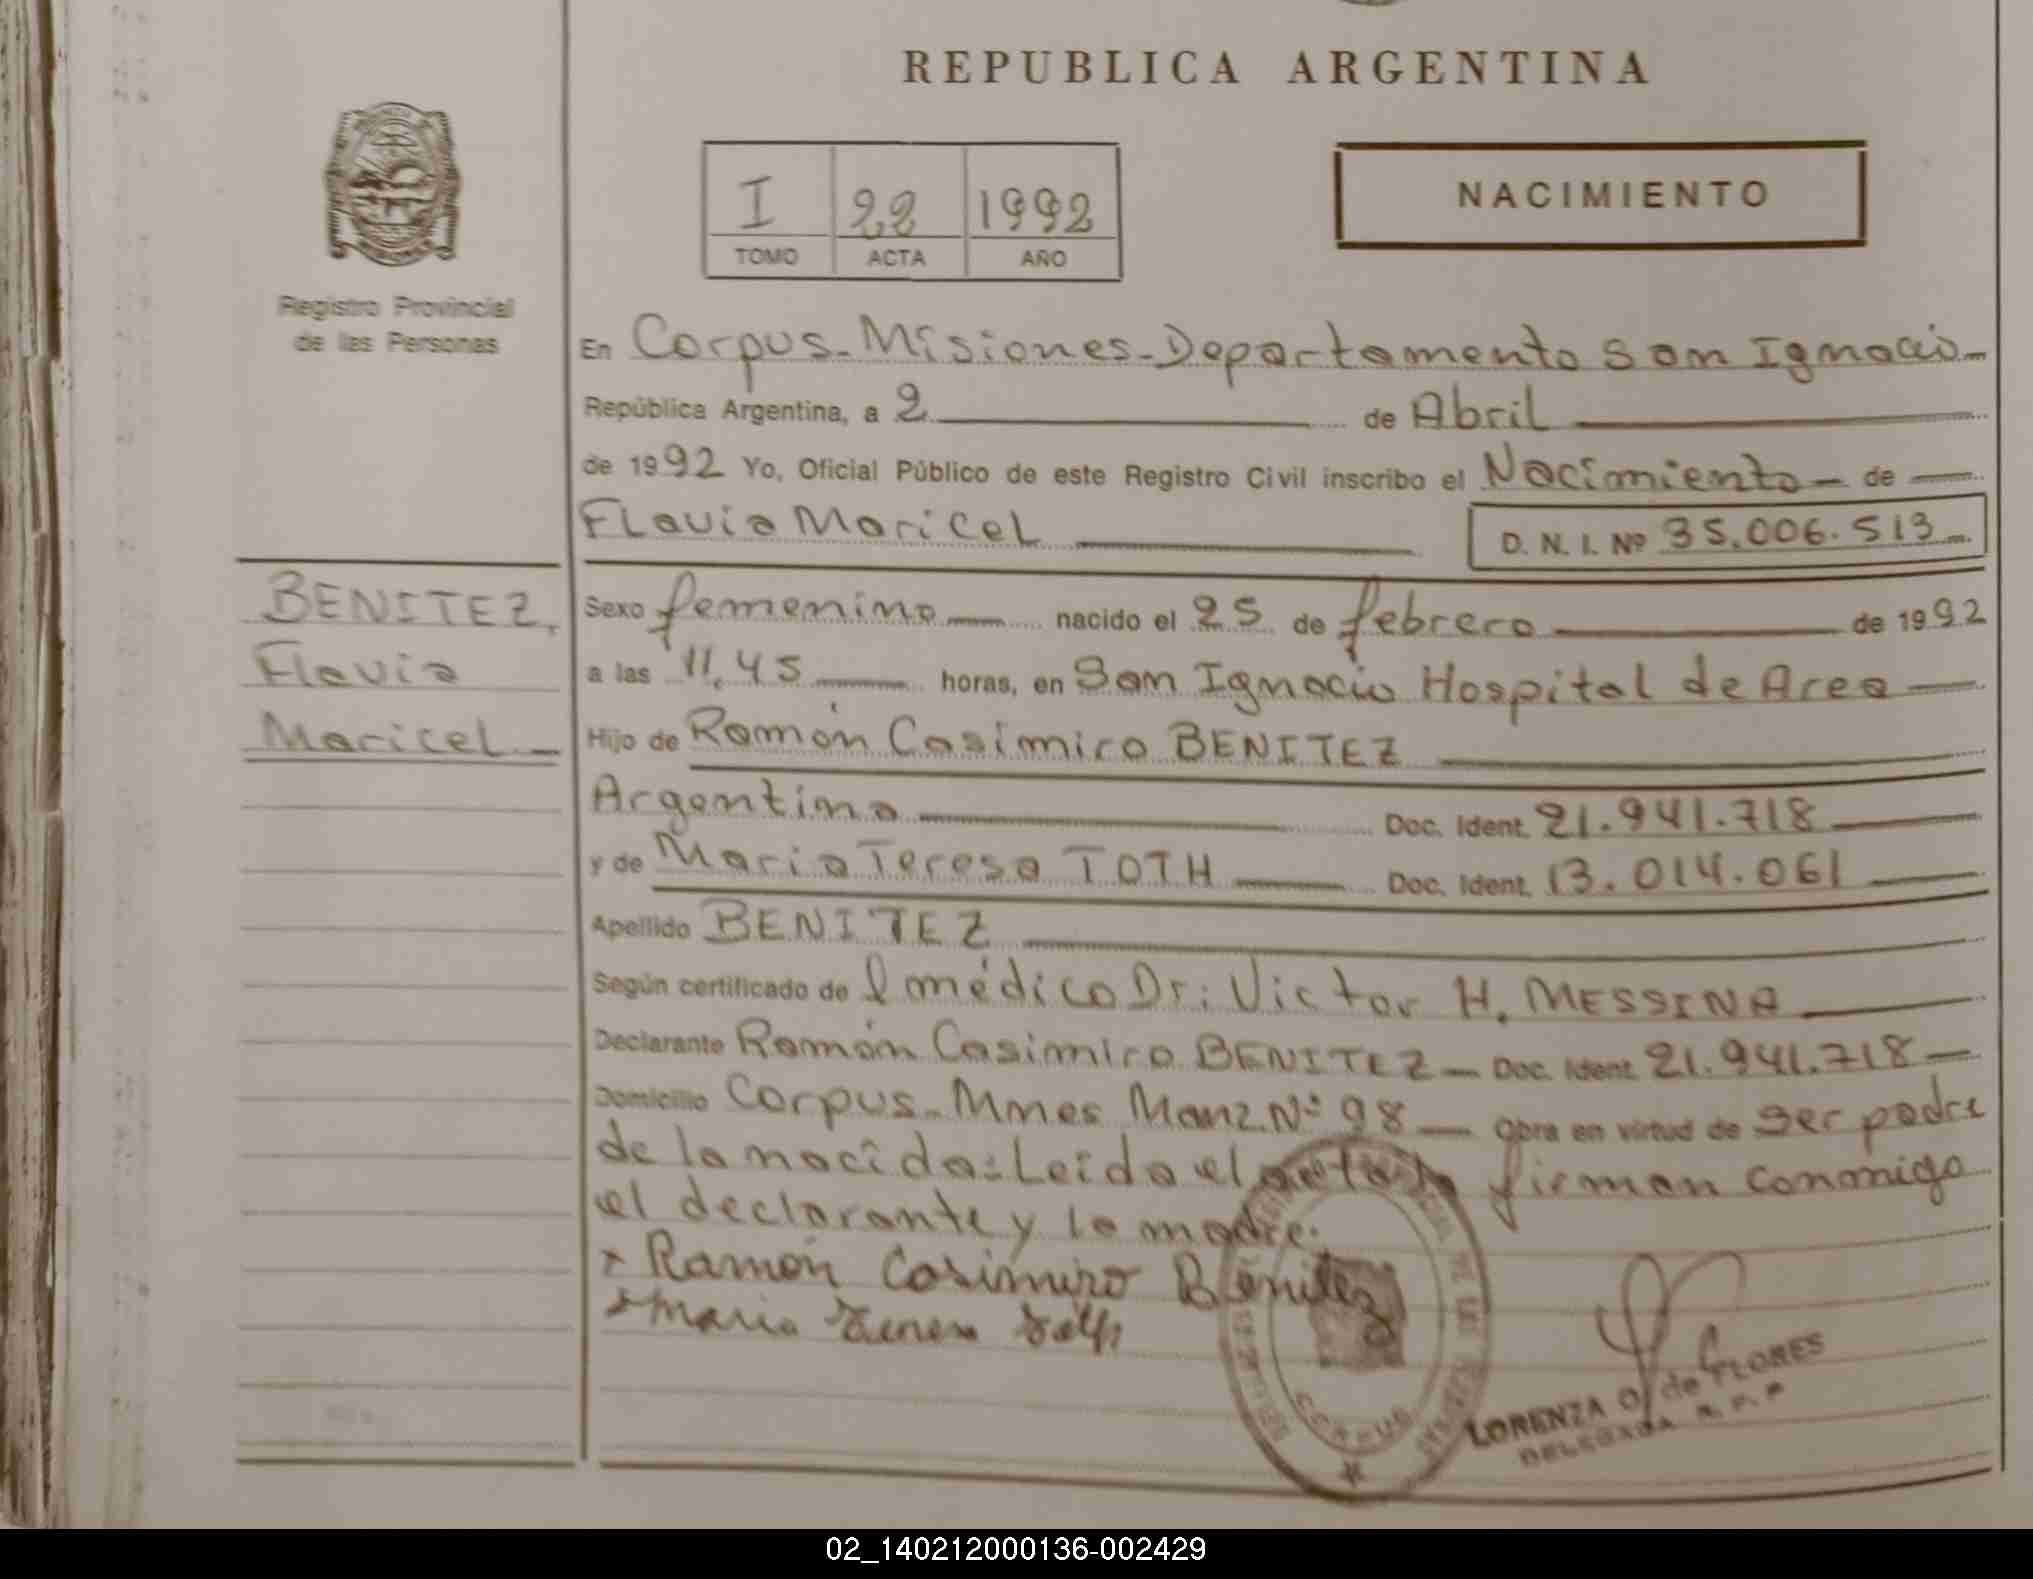 REPUBLICA ARGENTINA
I 22 1992
TOMO ACTA AÑO
NACIMIENTO
Registro Provincial
de las Personas
En Corpus-Misiones-Departamento San Ignacio
República Argentina, a 2 de Abril
de 1992 Yo, Oficial Público de este Registro Civil inscribo el Nacimiento de
Flavia Maricel D. N. I. Nº 35.006.513
BENITEZ,
Flavia
Maricel
Sexo femenino nacido el 25 de febrero de 1992
a las 11,45 horas, en San Ignacio Hospital de Area
Hijo de Ramón Casimiro BENITEZ
Argentino Doc. Ident. 21.941.718
y de Maria Teresa TOTH Doc. Ident. 13.014.061
Apellido BENITEZ
Según certificado de l médico Dr: Victor H. MESSINA
Declarante Ramón Casimiro BENITEZ Doc. Ident. 21.941.718
Domicilio Corpus-Mnes Manz. Nº 98 Obra en virtud de ser padre
de la nacida: Leida el acta firman conmigo
el declarante y la madre.
x Ramón Casimiro Benitez
x Maria Teresa Toth
CORPUS
LORENZA O. de FLORES
DELEGADA R. P. P
02_140212000136-002429